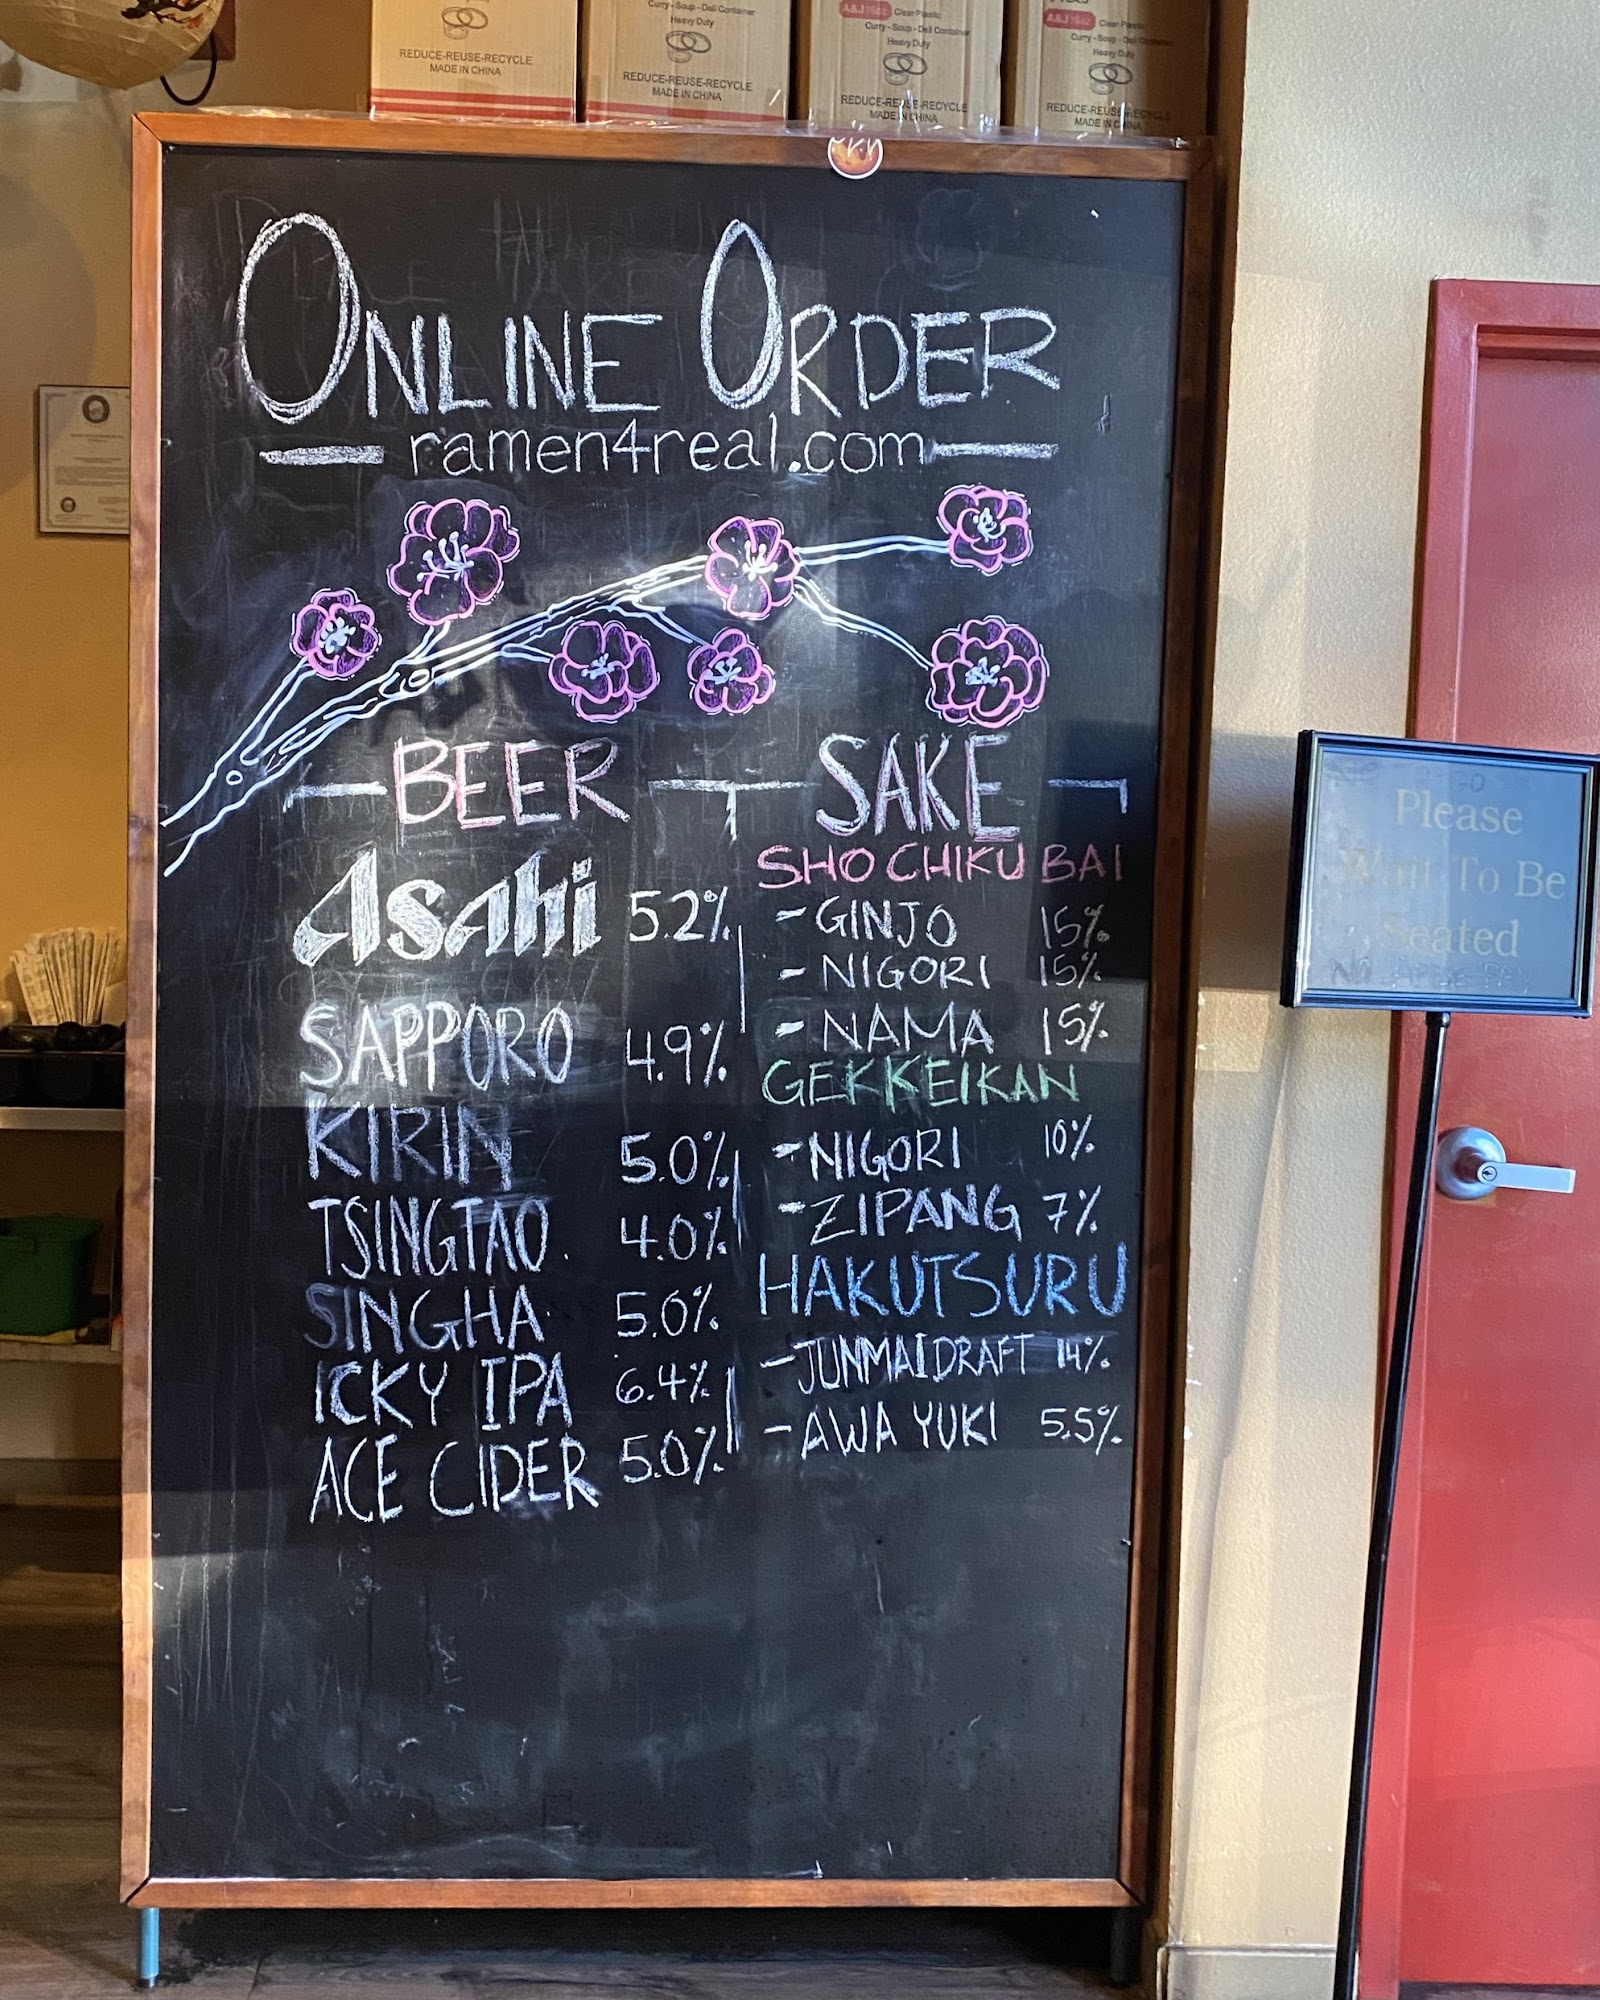 Curry - Soup - Deli Container
Heavy Duty
REDUCE-REUSE-RECYCLE
MADE IN CHINA
Curry - Soup - Deli Container
Heavy Duty
REDUCE-REUSE-RECYCLE
MADE IN CHINA
A&J 16oz Clear Plastic
Curry - Soup - Deli Container
Heavy Duty
REDUCE-REUSE-RECYCLE
MADE IN CHINA
A&J 16oz Clear Plastic
Curry - Soup - Deli Container
Heavy Duty
REDUCE-REUSE-RECYCLE
MADE IN CHINA
ONLINE ORDER
ramen4real.com
BEER
Asahi 5.2%
SAPPORO 4.9%
KIRIN 5.0%
TSINGTAO 4.0%
SINGHA 5.0%
ICKY IPA 6.4%
ACE CIDER 5.0%
SAKE
SHO CHIKU BAI
- GINJO 15%
- NIGORI 15%
- NAMA 15%
GEKKEIKAN
- NIGORI 10%
- ZIPANG 7%
HAKUTSURU
- JUNMAI DRAFT 14%
- AWA YUKI 5.5%
Please
Wait To Be
Seated